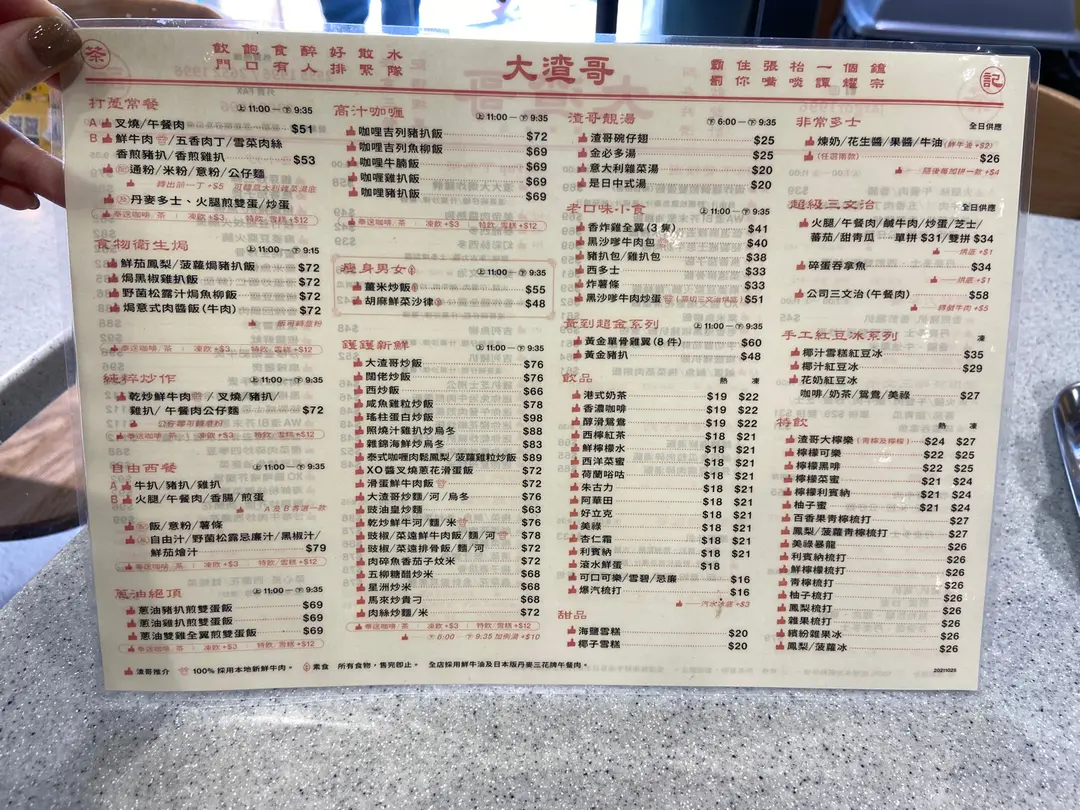 茶
飲飽食醉好散水
門口有人排緊隊
大渣哥
霸住張枱一個鐘
罰你嘴啖譚耀宗
記
打躉常餐 上11:00一下9:35
A 叉燒/午餐肉 $51
B 鮮牛肉/五香肉丁/雪菜肉絲
香煎豬扒/香煎雞扒 $53
通粉/米粉/意粉/公仔麵
轉出前一丁+$5 可轉意大利雜菜湯底
丹麥多士、火腿煎雙蛋/炒蛋
奉送咖啡、茶 | 凍飲+$3 | 特飲、雪糕+$12
食物衛生焗 上11:00一下9:15
鮮茄鳳梨/菠蘿焗豬扒飯 $72
焗黑椒雞扒飯 $72
野菌松露汁焗魚柳飯 $72
焗意式肉醬飯(牛肉) $72
飯可轉意粉
奉送咖啡、茶 | 凍飲+$3 | 特飲、雪糕+$12
純粹炒作 上11:00一下9:35
乾炒鮮牛肉/叉燒/豬扒/
雞扒/午餐肉公仔麵 $72
公仔麵可轉意粉
奉送咖啡、茶 | 凍飲+$3 | 特飲、雪糕+$12
自由西餐 上11:00一下9:35
A 牛扒/豬扒/雞扒
B 火腿/午餐肉/香腸/煎蛋
A及B各選一款
飯/意粉/薯條
自由汁/野菌松露忌廉汁/黑椒汁/
鮮茄燴汁 $79
奉送咖啡、茶 | 凍飲+$3 | 特飲、雪糕+$12
蔥油絕頂 上11:00一下9:35
蔥油豬扒煎雙蛋飯 $69
蔥油雞扒煎雙蛋飯 $69
蔥油雙雞全翼煎雙蛋飯 $69
奉送咖啡、茶 | 凍飲+$3 | 特飲、雪糕+$12
高汁咖喱 上11:00一下9:35
咖哩吉列豬扒飯 $72
咖哩吉列魚柳飯 $69
咖哩牛腩飯 $69
咖哩雞扒飯 $69
咖哩豬扒飯 $69
奉送咖啡、茶 | 凍飲+$3 | 特飲、雪糕+$12
瘦身男女 上11:00一下9:35
薑米炒飯 $55
胡麻鮮菜沙律 $48
鑊鑊新鮮 上11:00一下9:35
大渣哥炒飯 $76
闊佬炒飯 $76
西炒飯 $66
咸魚雞粒炒飯 $78
瑤柱蛋白炒飯 $98
照燒汁雞扒炒烏冬 $88
雜錦海鮮炒烏冬 $83
泰式咖喱肉鬆鳳梨/菠蘿雞粒炒飯 $89
XO醬叉燒蔥花滑蛋飯 $72
滑蛋鮮牛肉飯 $72
大渣哥炒麵/河/烏冬 $76
豉油皇炒麵 $63
乾炒鮮牛河/麵/米 $76
豉椒/菜遠鮮牛肉飯/麵/河 $78
豉椒/菜遠排骨飯/麵/河 $72
肉碎魚香茄子炆米 $72
五柳糖醋炒米 $68
星洲炒米 $68
馬來炒貴刁 $68
肉絲炒麵/米 $72
奉送咖啡、茶 | 凍飲+$3 | 特飲、雪糕+$12
下6:00一下9:35 加例湯+$10
渣哥靚湯 下6:00一下9:35
渣哥碗仔翅 $25
金必多湯 $25
意大利雜菜湯 $20
是日中式湯 $20
老口味小食 上11:00一下9:35
香炸雞全翼(3隻) $41
黑沙嗲牛肉包 $40
豬扒包/雞扒包 $38
西多士 $33
炸薯條 $33
黑沙嗲牛肉炒蛋 $51
黃到超金系列 上11:00一下9:35
黃金單骨雞翼(8件) $60
黃金豬扒 $48
飲品 熱 凍
港式奶茶 $19 $22
香濃咖啡 $19 $22
醇滑鴛鴦 $19 $22
西檸紅茶 $18 $21
鮮檸檬水 $18 $21
西洋菜蜜 $18 $21
荷蘭唂咕 $18 $21
朱古力 $18 $21
阿華田 $18 $21
好立克 $18 $21
美祿 $18 $21
杏仁霜 $18 $21
利賓納 $18 $21
滾水鮮蛋 $18
可口可樂/雪碧/忌廉 $16
爆汽梳打 $16
汽水冰底+$3
甜品
海鹽雪糕 $20
椰子雪糕 $20
非常多士 全日供應
煉奶/花生醬/果醬/牛油(鮮牛油+$2)
(任選兩款) $26
隨後每加拼一款+$4
超級三文治 全日供應
火腿/午餐肉/鹹牛肉/炒蛋/芝士/
蕃茄/甜青瓜 單拼$31/雙拼$34
烘底+$1
碎蛋吞拿魚 $34
烘底+$1
公司三文治(午餐肉) $58
轉鹹牛肉+$5
手工紅豆冰系列 凍
椰汁雪糕紅豆冰 $35
椰汁紅豆冰 $29
花奶紅豆冰
咖啡/奶茶/鴛鴦/美祿 $27
特飲 熱 凍
渣哥大檸樂(青檸及檸檬) $24 $27
檸檬可樂 $22 $25
檸檬黑啡 $22 $25
檸檬菜蜜 $21 $24
檸檬利賓納 $21 $24
柚子蜜 $21 $24
百香果青檸梳打 $27
鳳梨/菠蘿青檸梳打 $27
美祿暴龍 $26
利賓納梳打 $26
鮮檸檬梳打 $26
青檸梳打 $26
柚子梳打 $26
鳳梨梳打 $26
雜果梳打 $26
繽紛雜果冰 $26
鳳梨/菠蘿冰 $26
渣哥推介 100%採用本地新鮮牛肉。 素食 所有食物,售完即止。 全店採用鮮牛油及日本版丹麥三花牌午餐肉。
20211025